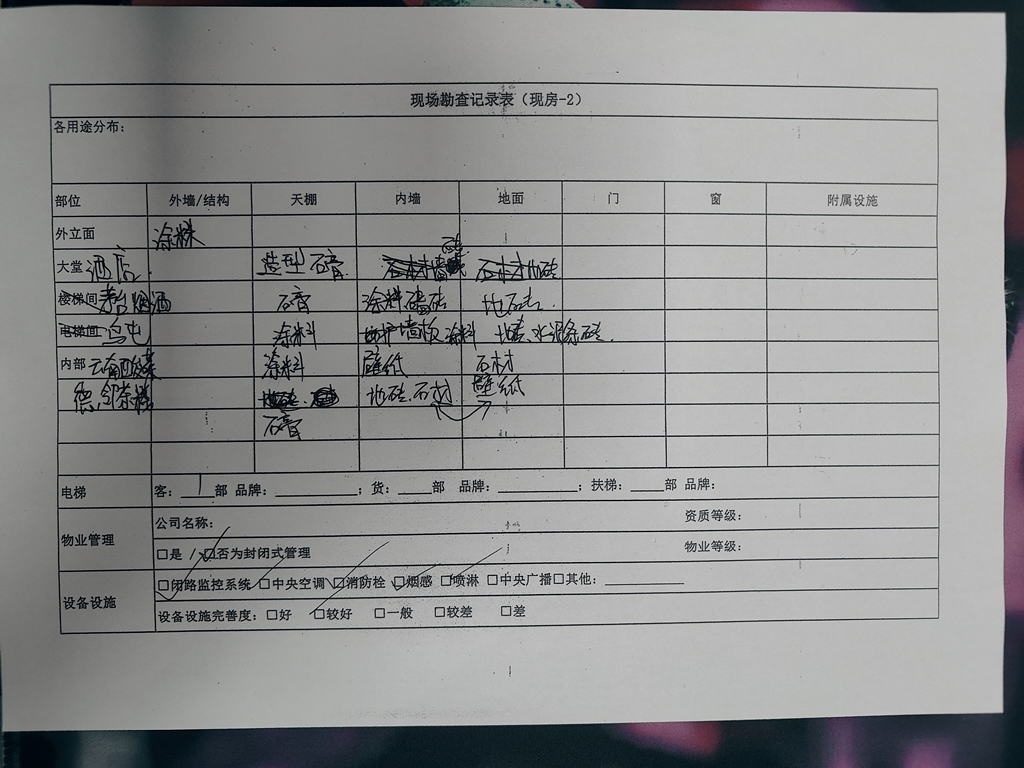 现场勘查记录表（现房-2）
各用途分布：
部位 外墙/结构 天棚 内墙 地面 门 窗 附属设施
外立面 涂料
大堂 酒店 造型 石膏 石材 石材 地砖
楼梯间 烟酒 石膏 涂料 墙砖 地砖
电梯间 涂料 护墙板 涂料 地砖、水泥 砖
内部 云南 涂料 壁纸 石材
地砖 地砖、石材 壁纸
石膏
电梯 客：1部 品牌：________；货：____部 品牌：________；扶梯：____部 品牌：
物业管理 公司名称： 资质等级：
□是 / □否为封闭式管理 物业等级：
设备设施 □闭路监控系统 □中央空调 □消防栓 □烟感 □喷淋 □中央广播□其他：________
设备设施完善度：□好 □较好 □一般 □较差 □差